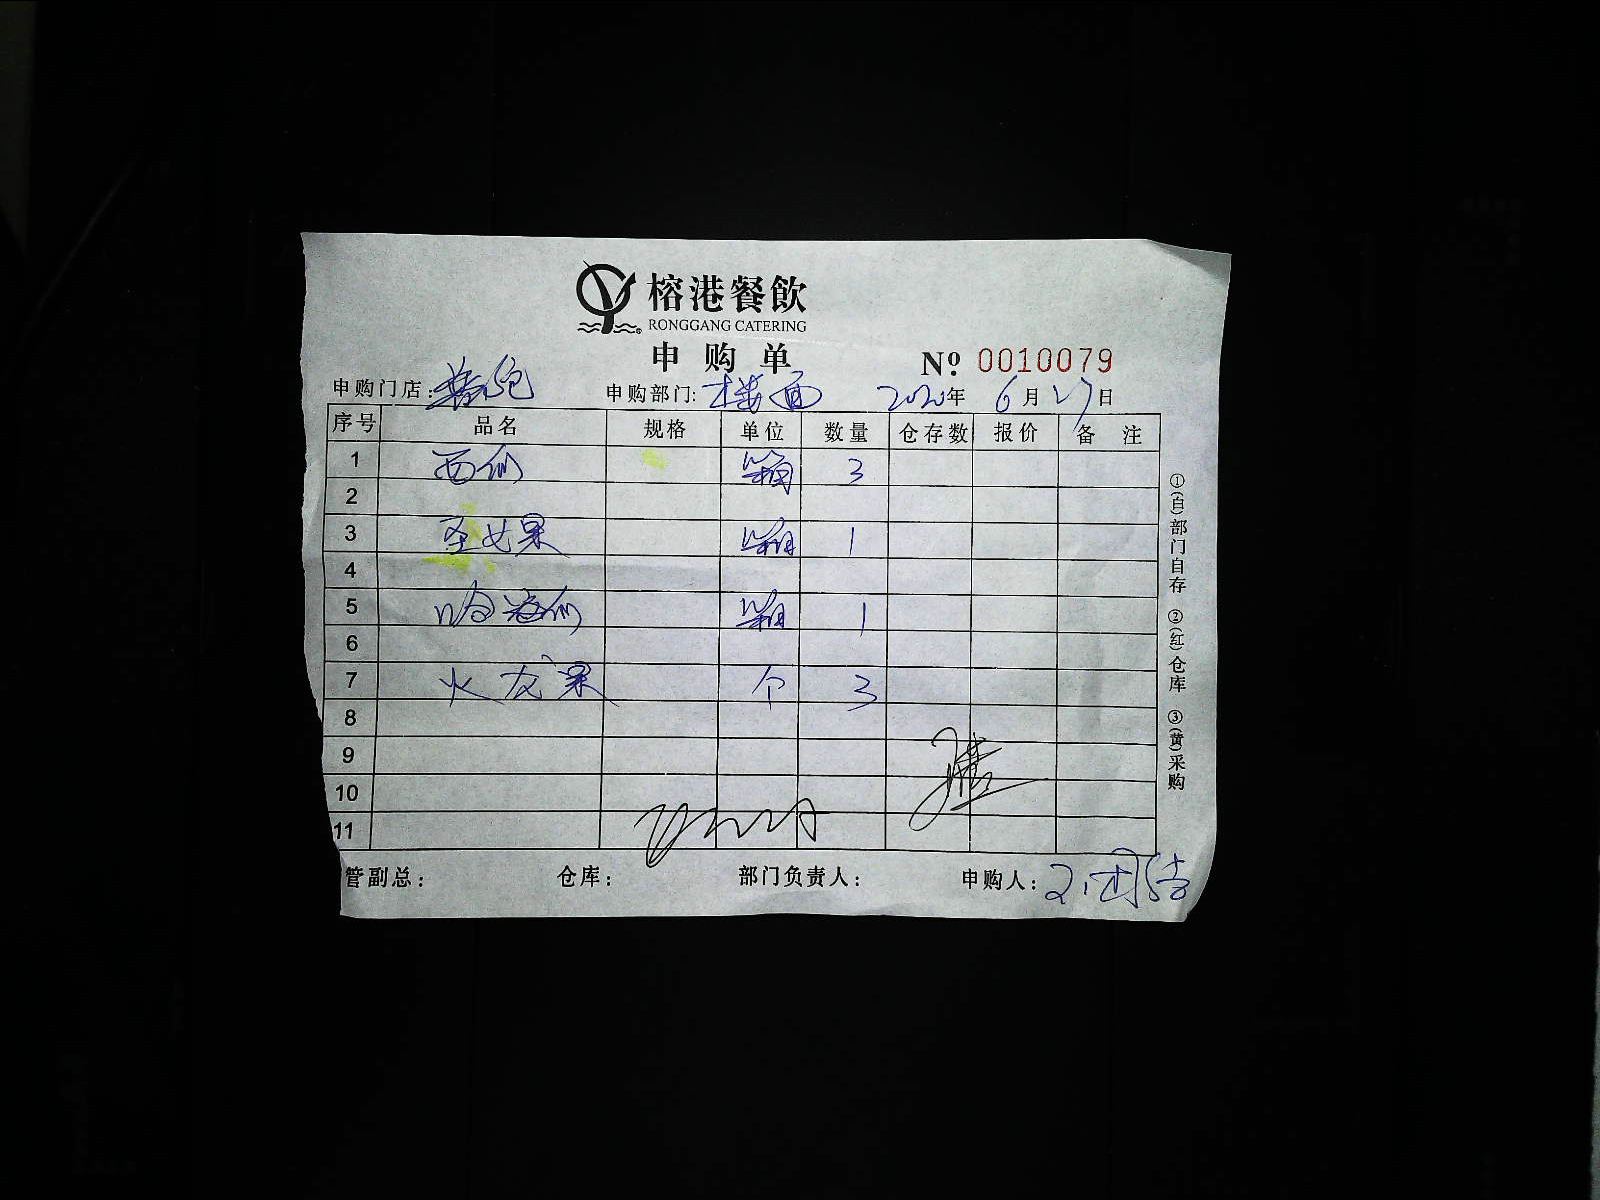 榕港餐飲
RONGGANG CATERING
申购单 №: 0010079
申购门店: 申购部门: 楼面 2020年 6月27日
序号 品名 规格 单位 数量 仓存数 报价 备注
1 西瓜 箱 3
2
3 圣女果 箱 1
4
5 哈密瓜 箱 1
6
7 火龙果 个 3
8
9
10
11
管副总: 仓库: 部门负责人: 申购人:
①(白)部门自存 ②(红)仓库 ③(黄)采购